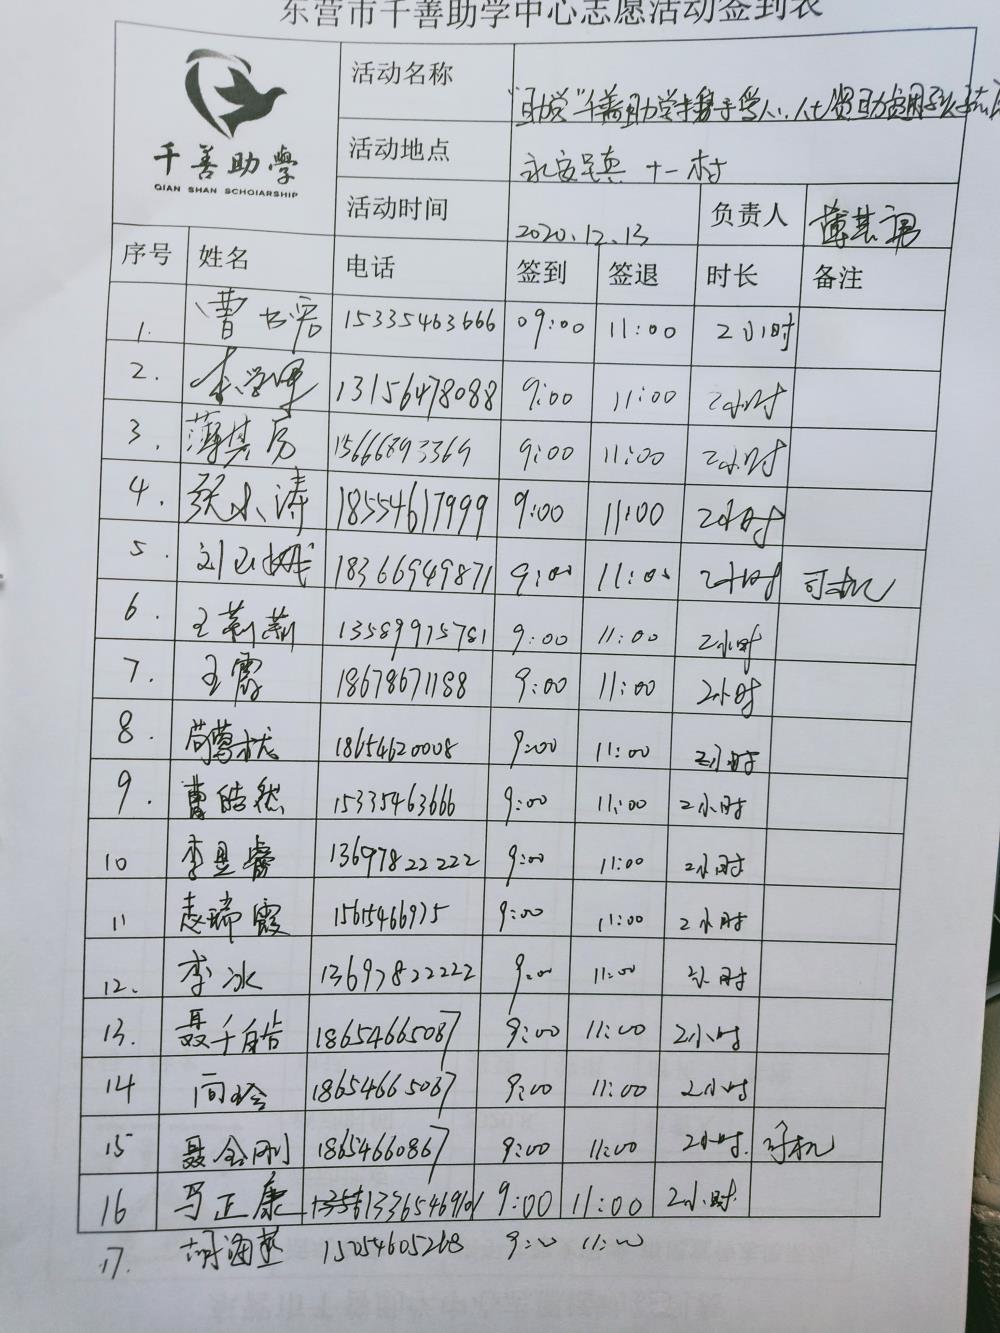 东营市千善助学中心志愿活动签到表
千善助学
QIAN SHAN SCHOlARSHIP
活动名称 "助学"千善助学携手
活动地点 永安镇 十一村
活动时间 2020.12.13 负责人 薄其
序号 姓名 电话 签到 签退 时长 备注
1. 曹 15335463666 09:00 11:00 2小时
2. 李学 13156478088 9:00 11:00 2小时
3. 薄其房 15666893369 9:00 11:00 2小时
4. 张小涛 18554617999 9:00 11:00 2小时
5. 刘玉 18366949871 9:00 11:00 2小时 司机
6. 王莉莉 13589975781 9:00 11:00 2小时
7. 王霞 18678671188 9:00 11:00 2小时
8. 18654620008 9:00 11:00 2小时
9. 曹皓然 15335463666 9:00 11:00 2小时
10 李昱睿 13697822222 9:00 11:00 2小时
11 赵瑞霞 15615466975 9:00 11:00 2小时
12. 李冰 13697822222 9:00 11:00 2小时
13. 聂千皓 18654665087 9:00 11:00 2小时
14 18654665087 9:00 11:00 2小时
15 聂金刚 18654660867 9:00 11:00 2小时. 司机
16 马正康 9:00 11:00 2小时.
17. 胡海燕 15054605268 9:00 11:00